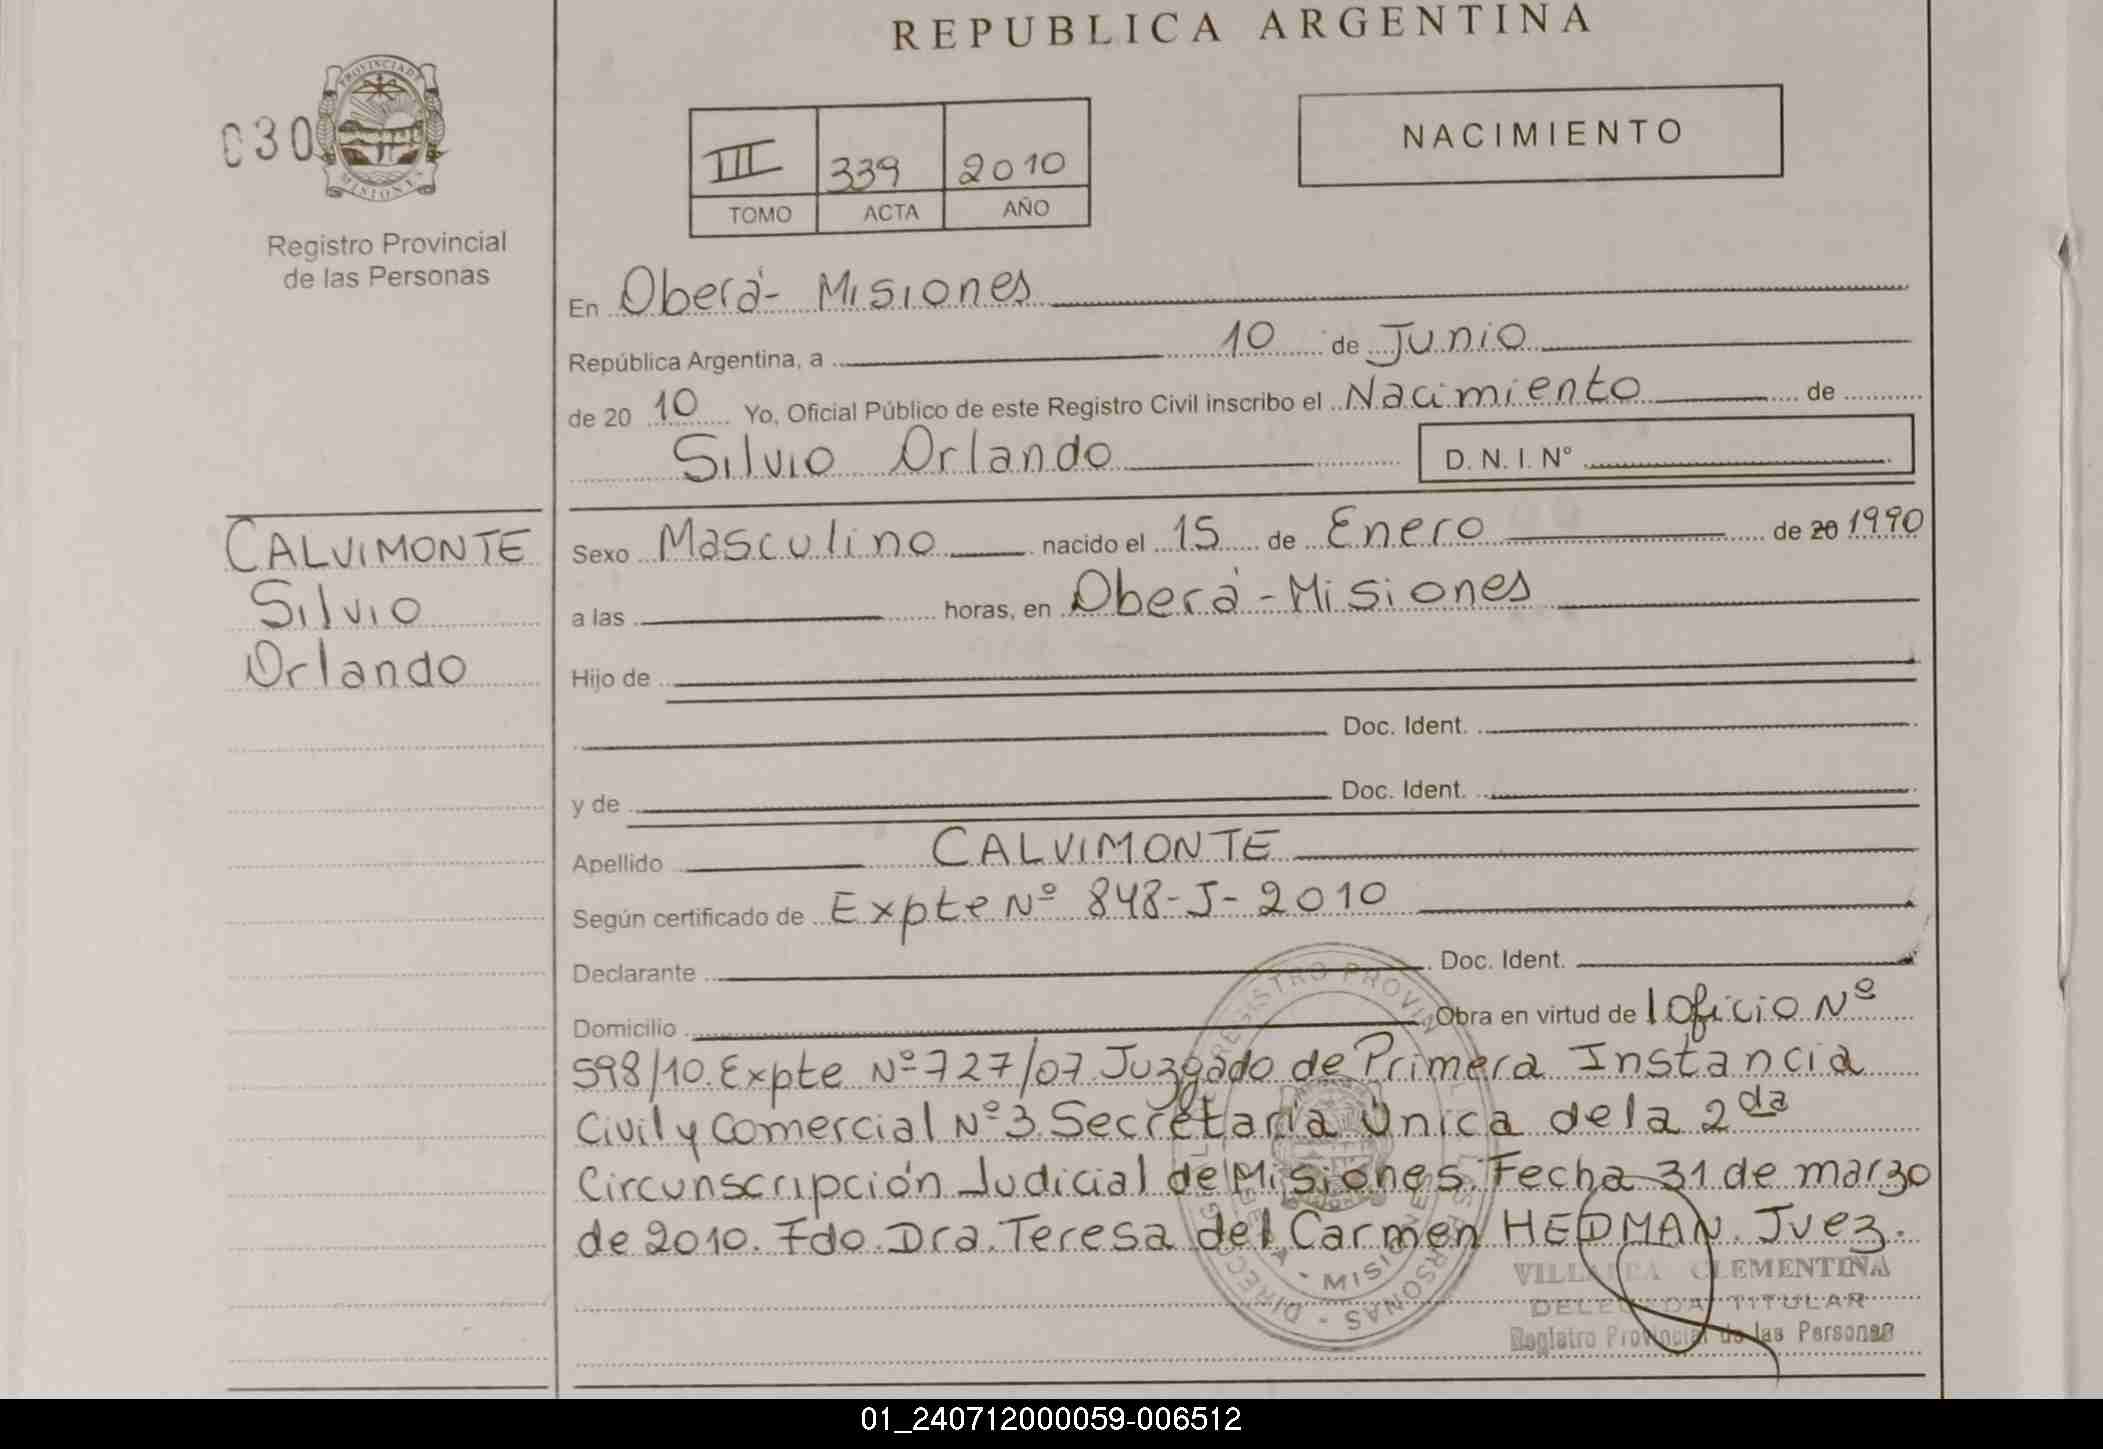 REPUBLICA ARGENTINA
030
PROVINCIA DE
MISIONES
Registro Provincial
de las Personas
III 339 2010
TOMO ACTA AÑO
NACIMIENTO
En Oberá - Misiones
República Argentina, a 10 de Junio
de 20 10 Yo, Oficial Público de este Registro Civil inscribo el Nacimiento de
Silvio Orlando D. N. I. Nº
CALVIMONTE
Silvio
Orlando
Sexo Masculino nacido el 15 de Enero de 20 1990
a las horas, en Oberá - Misiones
Hijo de
Doc. Ident.
y de Doc. Ident.
Apellido CALVIMONTE
Según certificado de Expte Nº 848-J-2010
Declarante Doc. Ident.
Domicilio Obra en virtud de l Oficio Nº
598/10. Expte Nº 727/07. Juzgado de Primera Instancia
Civil y Comercial Nº 3 Secretaría Única de la 2da
Circunscripción Judicial de Misiones. Fecha 31 de marzo
de 2010. Fdo. Dra. Teresa del Carmen HEDMAN. Juez.
CLEMENTINA
DELEGADA TITULAR
Registro Provincial de las Personas
01_240712000059-006512